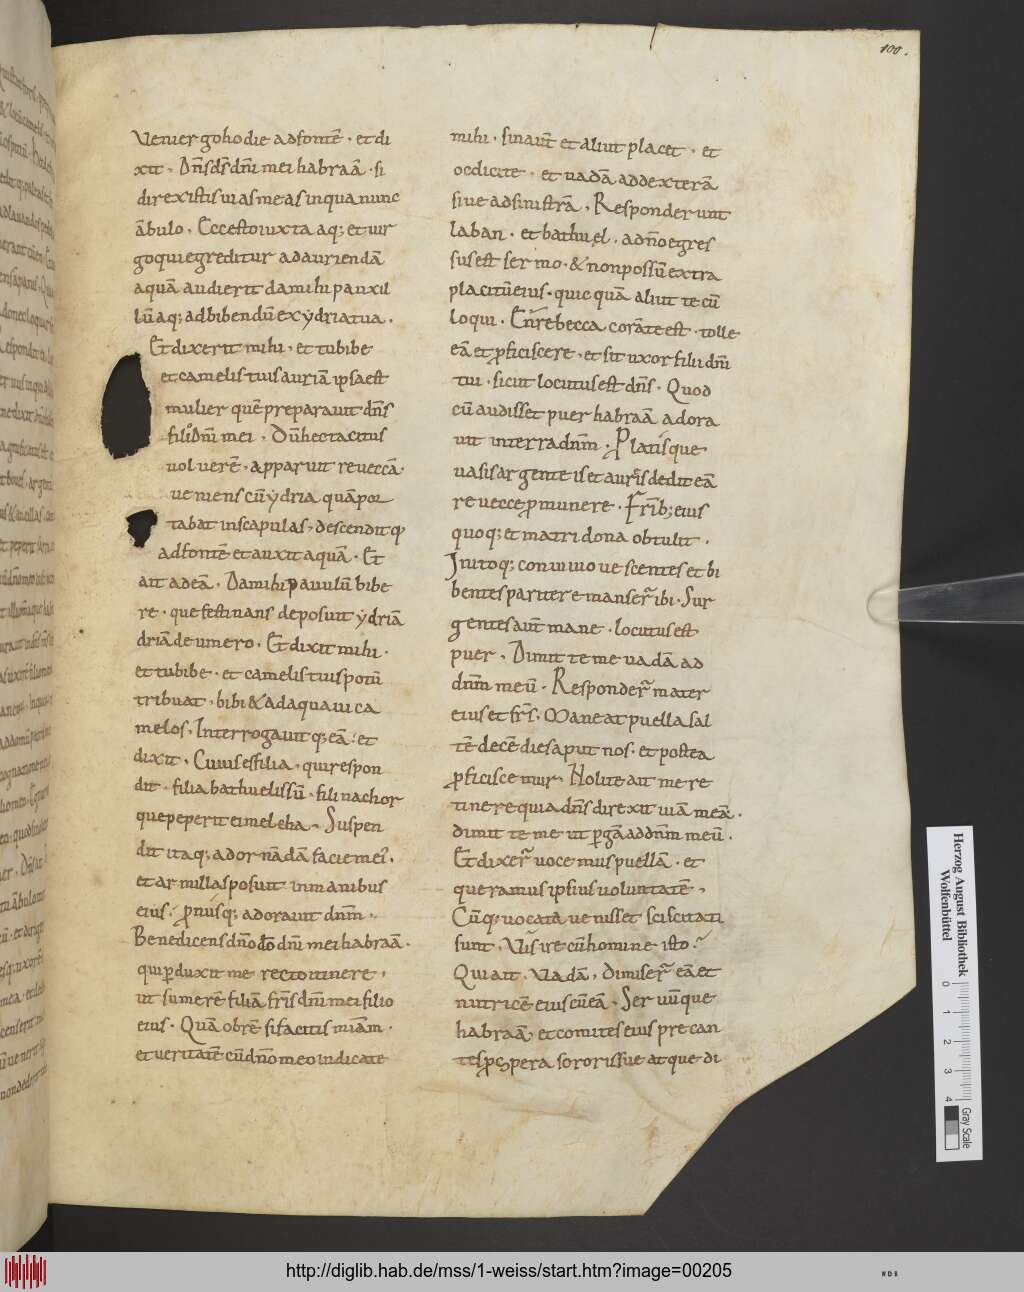 100.
Venier go hodie ad fontē · et di
xit · Dn̄s ds̄ dn̄i mei habraā · si
direxisti uias meas in qua nunc
ābulo · Ecce sto iuxta aq; et uir
go qui egreditur ad auriendā
aquā audierit da mihi pauxil
lū aq; ad bibendū ex ydria tua .
Et dixerit mihi · et tu bibe
et camelis tuis auriā ipsa est
mulier quē preparauit dn̄s
filio dn̄i mei . Dū hec tacitus
uoluerē · apparuit reueccā ·
ueniens cū ydria quā por
tabat in scapulas · descenditq;
ad fontē et auxit aquā · Et
ait ad eā . Da mihi paululū bibe
re · que festinans deposuit ydriā
driā de umero · Et dixit mihi ·
et tu bibe · et camelis tuis potū
tribuat · bibi & adaquaui ca
melos · Interrogauitq; eā : et
dixit · Cuius es filia · qui respon
dit · filia bathuelis sū · fili nachor
que peperit ei melcha · Suspen
dit itaq; ad ornādā faciē mei .
et armillas posuit in manibus
eius · pronusq; adorauit dnm̄ .
Benedicens dn̄o dō dn̄i mei habraā ·
qui perduxit me recto itinere ·
ut sumerē filiā frīs dn̄i mei filio
eius · Quā obrē si facitis miā m̄ ·
et ueritatē cū dn̄o meo indicate
mihi · sin aut̄ et aliut placet · et
oc dicite · et uadā ad dexterā
siue ad sinistrā · Responderunt
laban · et bathuel · a dn̄o egres
sus est sermo · & non possū extra
placitū eius · quicquā aliut te cū
loqui · En̄ rebecca corā te est · tolle
eā et proficiscere · et sit uxor filii dn̄i
tui · sicut locutus est dn̄s · Quod
cū audisset puer habraā adora
uit in terra dnm̄ · Platisque
uasis argenteis et aureis dedit eā
reuecce pro munere · Frīb; eius
quoq; et matri dona obtulit .
Initoq; conuiuio uescentes et bi
bentes pariter manser̄ ibi · Sur
gentes aut̄ mane · locutus est
puer · Dimit te me uadā ad
dnm̄ meū · Responder̄ mater
eius et frs̄ · Maneat puella sal
tē decē dies aput nos · et postea
proficiscetur · Nolite ait me re
tinere quia dn̄s direxit uiā meā .
dimitte me ut pergā ad dnm̄ meū .
Et dixer̄ uocemus puellā · et
queramus ipsius uoluntatē ·
Cūq; uocata uenisset sciscitati
sunt · Vis ire cū homine isto ·
Qui ait · Vadā · Dimiser̄ eā et
nutricē eius cū eā · Seruūque
habraā · et comites eius precan
tes prospera sorori sue atque di
Herzog August Bibliothek
Wolfenbüttel
0 1 2 3 4
Gray Scale
http://diglib.hab.de/mss/1-weiss/start.htm?image=00205